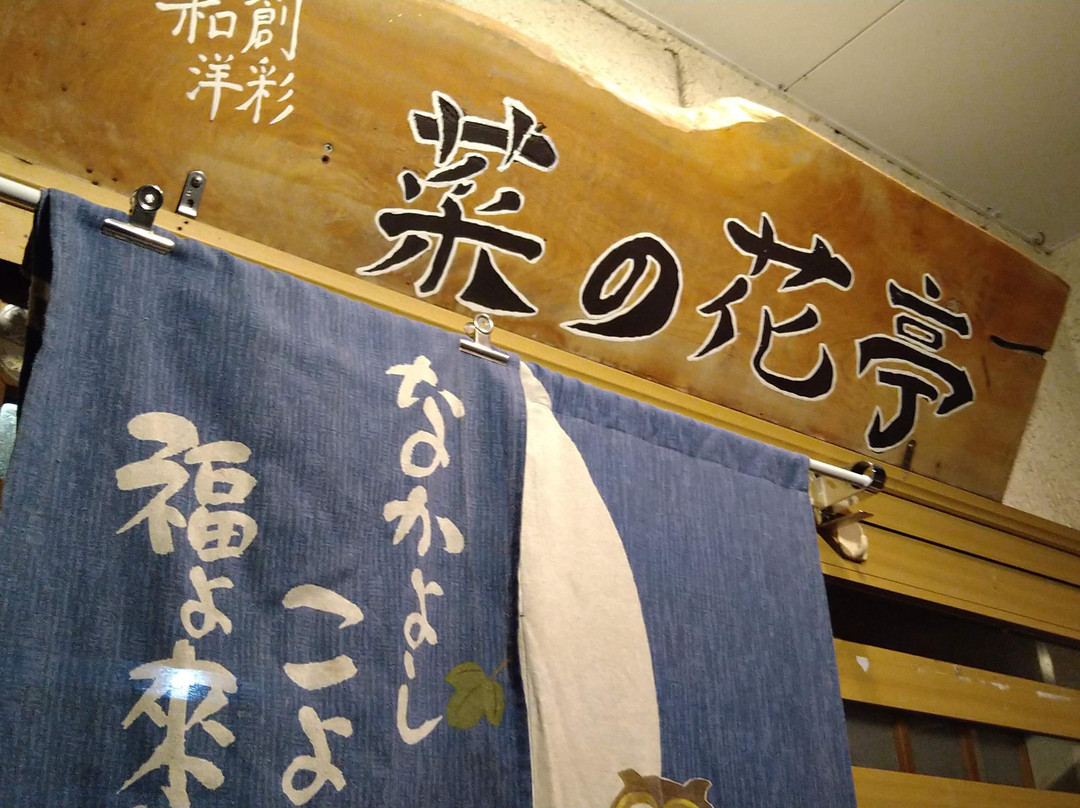 創彩
和洋
菜の花亭
なかよし
こよ
福よ來